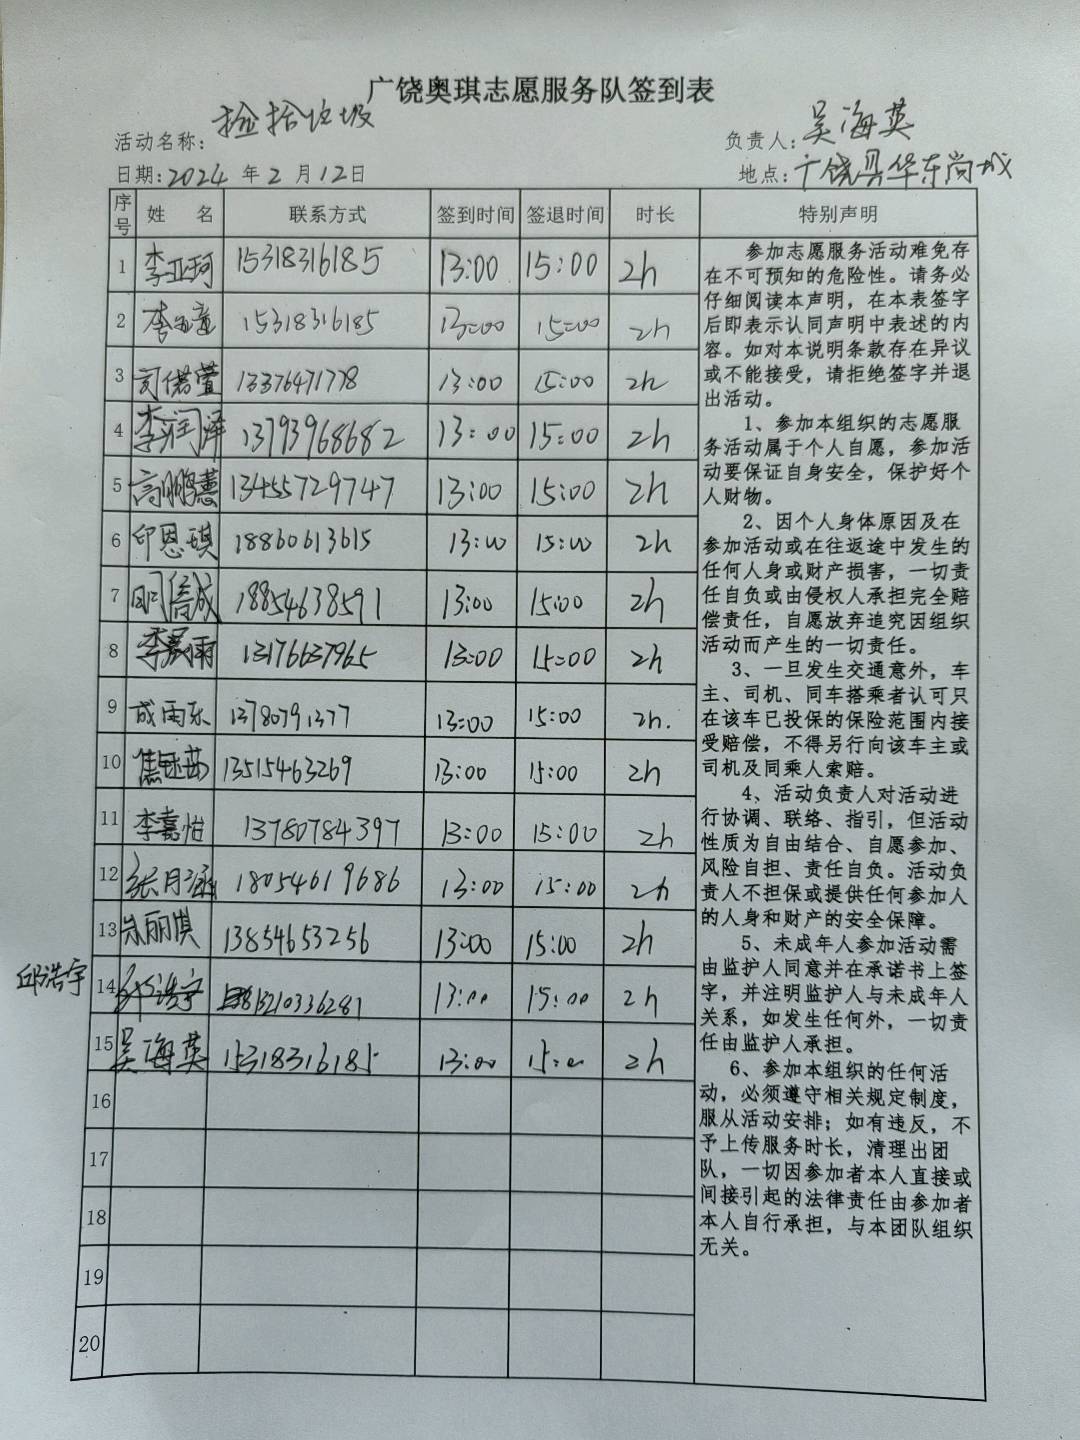 广饶奥琪志愿服务队签到表
活动名称: 捡拾垃圾
负责人: 吴海英
日期: 2024 年 2 月 12 日
地点: 广饶县华东尚城
序号 姓 名 联系方式 签到时间 签退时间 时长 特别声明
1 李亚珂 15318316185 13:00 15:00 2h
2 15318316185 13:00 15:00 2h
3 司偌萱 13376471778 13:00 15:00 2h
4 李润泽 13793968682 13:00 15:00 2h
5 高鹏慧 13455729747 13:00 15:00 2h
6 印恩琪 18860613615 13:00 15:00 2h
7 18854638591 13:00 15:00 2h
8 13176637965 13:00 15:00 2h
9 成雨乐 13780791377 13:00 15:00 2h.
10 13515463269 13:00 15:00 2h
11 李嘉怡 13780784397 13:00 15:00 2h
12 张月涵 18054619686 13:00 15:00 2h
13 朱丽淇 13854653256 13:00 15:00 2h
邱浩宇
14 邱浩宇 13210336281 13:00 15:00 2h
15 吴海英 15318316185 13:00 15:00 2h
16
17
18
19
20
参加志愿服务活动难免存
在不可预知的危险性。请务必
仔细阅读本声明，在本表签字
后即表示认同声明中表述的内
容。如对本说明条款存在异议
或不能接受，请拒绝签字并退
出活动。
1、参加本组织的志愿服
务活动属于个人自愿，参加活
动要保证自身安全，保护好个
人财物。
2、因个人身体原因及在
参加活动或在往返途中发生的
任何人身或财产损害，一切责
任自负或由侵权人承担完全赔
偿责任，自愿放弃追究因组织
活动而产生的一切责任。
3、一旦发生交通意外，车
主、司机、同车搭乘者认可只
在该车已投保的保险范围内接
受赔偿，不得另行向该车主或
司机及同乘人索赔。
4、活动负责人对活动进
行协调、联络、指引，但活动
性质为自由结合、自愿参加、
风险自担、责任自负。活动负
责人不担保或提供任何参加人
的人身和财产的安全保障。
5、未成年人参加活动需
由监护人同意并在承诺书上签
字，并注明监护人与未成年人
关系，如发生任何外，一切责
任由监护人承担。
6、参加本组织的任何活
动，必须遵守相关规定制度，
服从活动安排；如有违反，不
予上传服务时长，清理出团
队，一切因参加者本人直接或
间接引起的法律责任由参加者
本人自行承担，与本团队组织
无关。